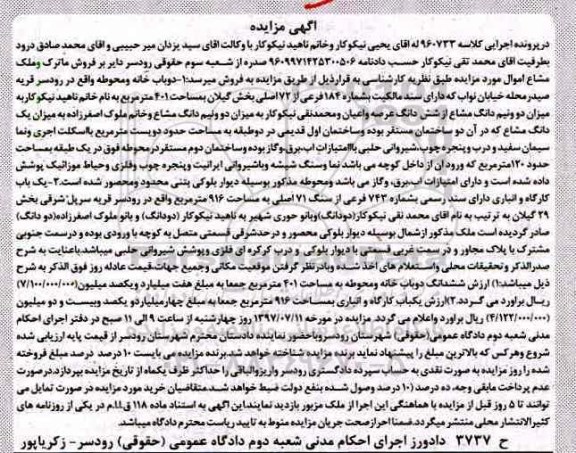 آگهی مزایده
در پرونده اجرایی کلاسه ۹۶۰۷۳۳ له اقای یحیی نیکوکار و خانم ناهید نیکوکار با وکالت اقای سید یزدان میر حبیبی و اقای محمد صادق درود
بطرفیت اقای محمد تقی نیکوکار حسب دادنامه ۹۶۰۹۹۷۱۴۲۵۳۰۰۵۰۶ صدره از شعبه سوم حقوقی رودسر دایر بر فروش ماترک و ملک
مشاع اموال مورد مزایده طبق نظریه کارشناسی به قرار ذیل از طریق مزایده به فروش میرسد:۱-دوباب خانه ومحوطه واقع در رودسر قریه
صیدرمحله خیابان نواب که دارای سند مالکیت بشماره ۱۸۴ فرعی از ۷۲ اصلی بخش گیلان بمساحت ۴۰۱ مترمربع به نام خانم ناهید نیکوکار به
میزان دو ونیم دانگ مشاع از شش دانگ عرصه واعیان ومحمدتقی نیکوکار به میزان دو ونیم دانگ مشاع وخانم ملوک اصغرزاده به میزان یک
دانگ مشاع که در آن دو ساختمان مستقر بوده وساختمان اول قدیمی در دوطبقه به مساحت حدود دویست مترمربع بااسکلت اجری ونما
سیمان سفید و درب وپنجره چوب،شیروانی حلبی باامتیازات اب،برق،وگاز بوده وساختمان دوم مستقر در محوطه فوق در یک طبقه بمساحت
حدود ۱۲۰مترمربع که ورود ان از داخل کوچه می باشد نما وسنگ شیشه وباشیروانی ایرانیت وپنجره چوب وفلزی وحیاط موزائیک پوشش
داده شده است و دارای امتیازات اب،برق، وگاز می باشد ومحوطه مذکور بوسیله دیوار بلوکی بتنی محدود ومحصور شده است.۲-یک باب
کارگاه و انباری دارای سند رسمی بشماره ۷۴۳ فرعی از سنگ ۷۱ اصلی به مساحت ۹۱۶ مترمربع واقع در رودسر قریه سرپل شرقی بخش
۲۹ گیلان به ترتیب به نام اقای محمد تقی نیکوکار(دودانگ)وبانو حوری شهیر به ناهید نیکوکار (دودانگ) و بانو ملوک اصغرزاده(دو دانگ)
صادر گردیده است ملک مذکور ازشمال بوسیله دیوار بلوکی محصور و در حدشرقی قسمتی متصل به کوچه با ورودی بوده و درسمت جنوبی
مشترک با پلاک مجاور و در سمت غربی قسمتی با دیوار بلوکی و درب کرکره ای فلزی وپوشش شیروانی حلبی میباشد.باعنایت به شرح
صدرالذکر و تحقیقات محلی واستعلام های اخذ شده وبادرنظر گرفتن موقعیت مکانی وجمیع جهات،قیمت عادله روز فوق الذکر به شرح
ذیل میباشد:۱) ارزش ششدانگ دوباب خانه ومحوطه به مساحت ۴۰۱ مترمربع جمعا به مبلغ هفت میلیارد ویکصد میلیون(۷/۱۰۰/۰۰۰/۰۰۰)
ریال براورد می گردد.۲)ارزش یکباب کارگاه و انباری بمساحت ۹۱۶ مترمربع جمعا به مبلغ چهارمیلیاردو یکصد وبیست و دو میلیون
(۴/۱۲۲/۰۰۰/۰۰۰) ریال براورد واعلام می گردد. مزایده در مورخه ۱۳۹۷/۰۷/۱۱ روز چهارشنبه از ساعت ۹ الی ۱۱ صبح در دفتر اجرای احکام
مدنی شعبه دوم دادگاه عمومی(حقوقی) شهرستان رودسر وباحضور نماینده دادستان محترم شهرستان رودسر از قیمت پایه ارزیابی شده
شروع وهرکس که بالاترین مبلغ را پیشنهاد نماید برنده مزایده شناخته خواهد شد.برنده مزایده می بایست ۱۰ درصد درصد مبلغ فروخته
شده را روز مزایده به صورت نقدی به حساب سپرده دادگستری رودسر واریز والباقی را حداکثر ظرف یکماه از تاریخ مزایده بپردازد.درصورت
عدم پرداخت مابقی وجه، ده درصد (۱۰ درصد وصول شده بنفع دولت ضبط خواهد شد.متقاضیان خرید مورد مزایده در صورت تمایل می
توانند تا ۵ روز قبل از مزایده با هماهنگی این اجرا از ملک مزبور بازدید نمایند.این آگهی به استناد ماده ۱۱۸ ق.ا.م در یکی از روزنامه های
کثیرالانتشار محلی منتشر میگردد.ضمنا احراز صحت جریان مزایده منوط به تایید ریاست محترم دادگاه میباشد.
ح ۳۷۳۷ دادورز اجرای احکام مدنی شعبه دوم دادگاه عمومی (حقوقی) رودسر- زکریاپور